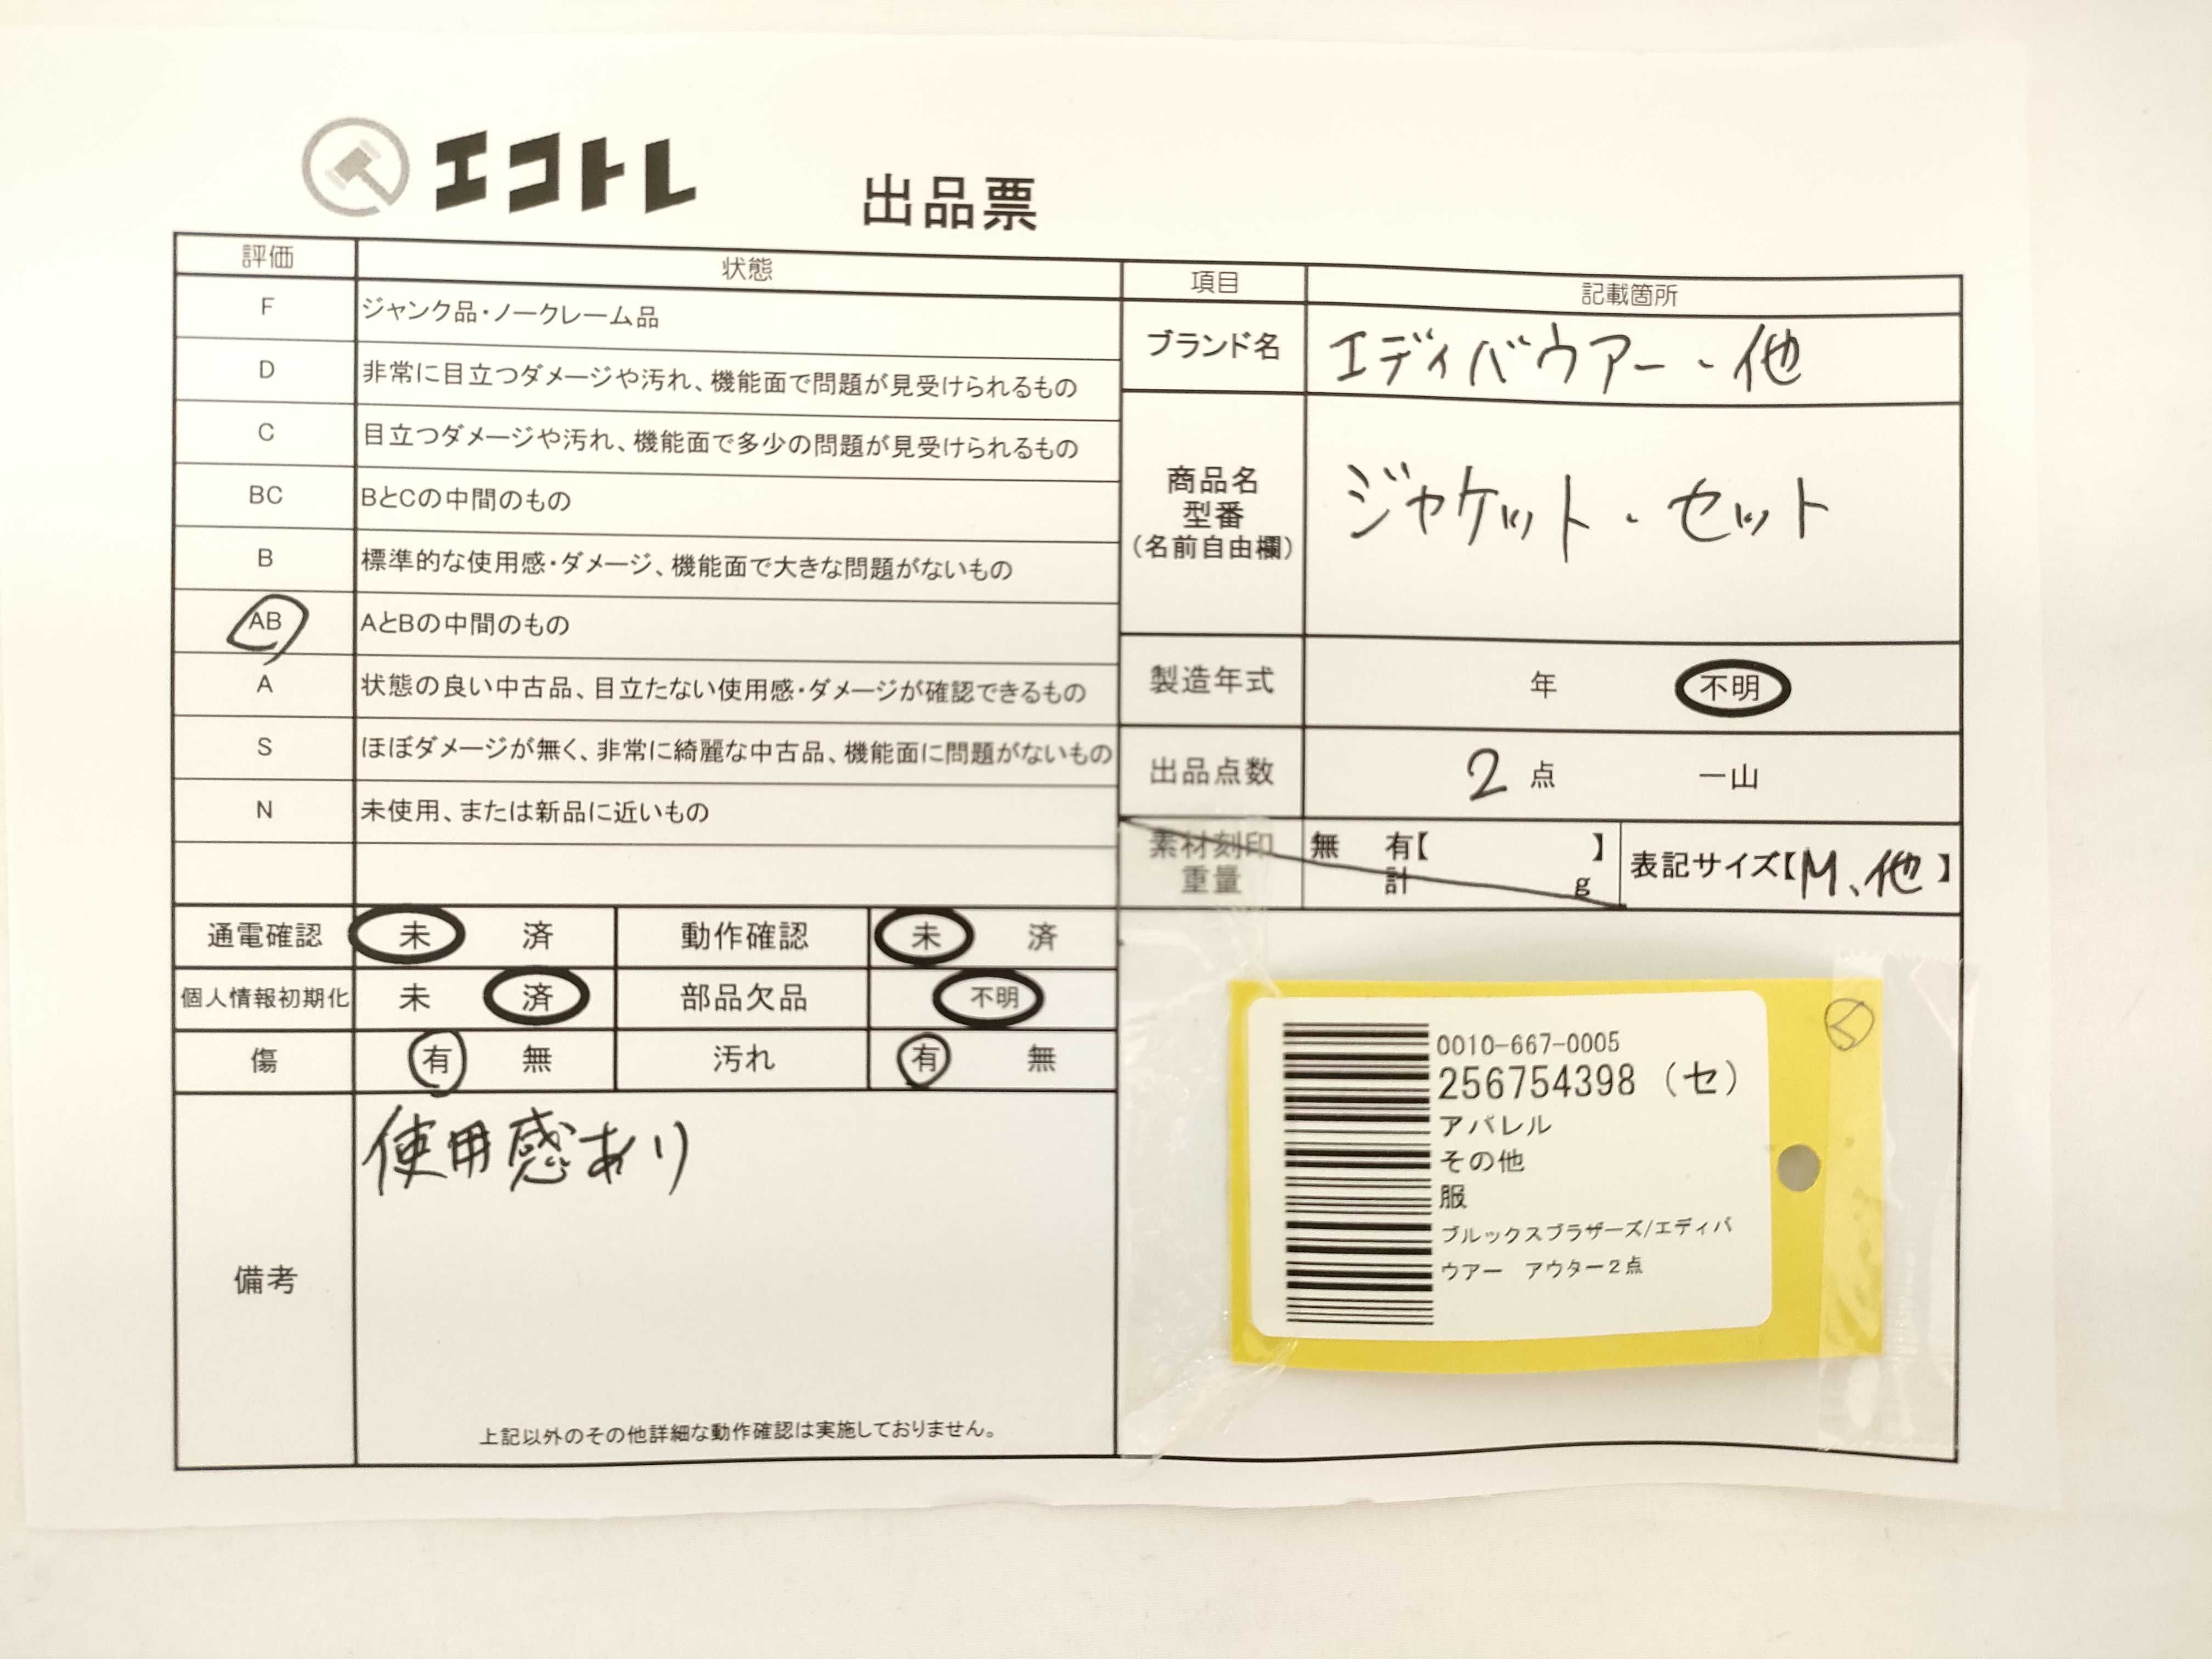 エコトレ
出品票
評価 状態
F ジャンク品・ノークレーム品
D 非常に目立つダメージや汚れ、機能面で問題が見受けられるもの
C 目立つダメージや汚れ、機能面で多少の問題が見受けられるもの
BC BとCの中間のもの
B 標準的な使用感・ダメージ、機能面で大きな問題がないもの
AB AとBの中間のもの
A 状態の良い中古品、目立たない使用感・ダメージが確認できるもの
S ほぼダメージが無く、非常に綺麗な中古品、機能面に問題がないもの
N 未使用、または新品に近いもの
項目 記載箇所
ブランド名 エディバウアー・他
商品名
型番
(名前自由欄)
ジャケット・セット
製造年式 年 不明
出品点数 2 点 一山
素材刻印 無 有【 】
重量 計 g
表記サイズ【M、他】
通電確認 未 済 動作確認 未 済
個人情報初期化 未 済 部品欠品 不明
傷 有 無 汚れ 有 無
備考
使用感あり
上記以外のその他詳細な動作確認は実施しておりません。
0010-667-0005
256754398（セ）
アパレル
その他
服
ブルックスブラザーズ/エディバ
ウアー　アウター2点